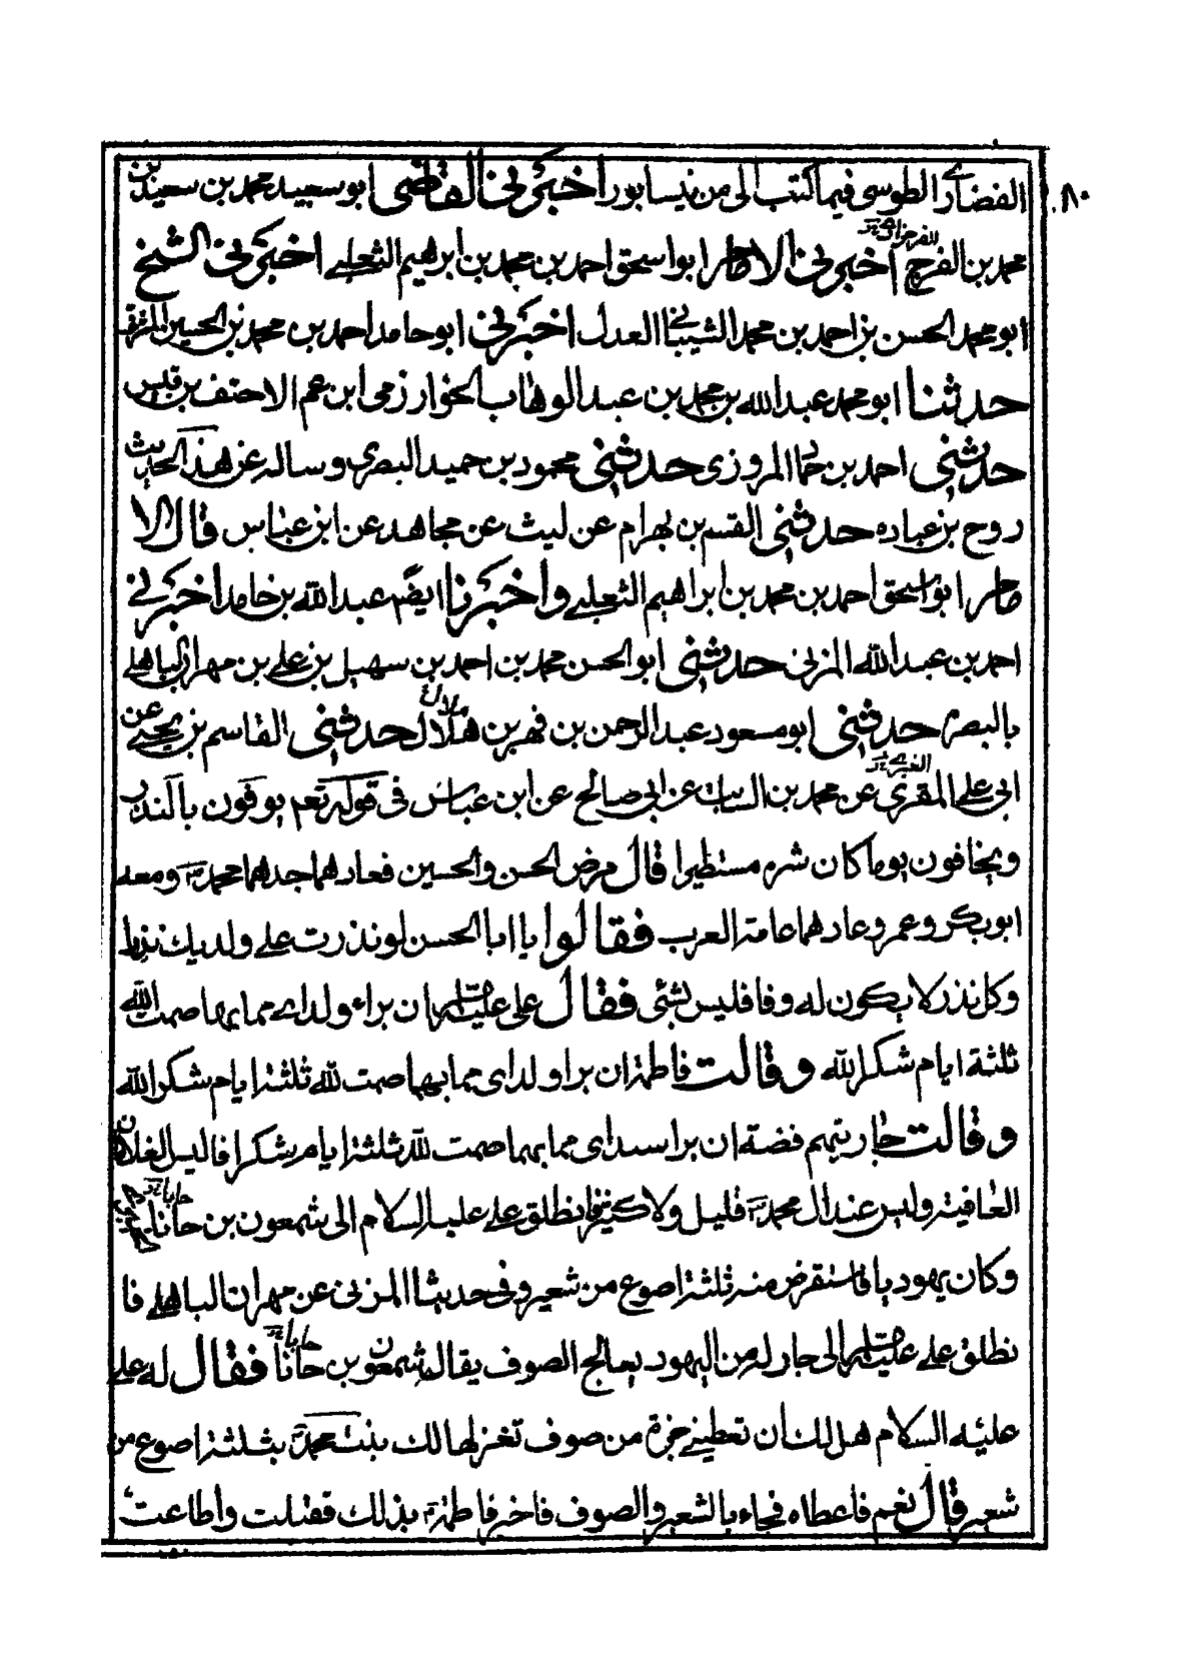 الفضاري الطوسي فيما كتب الى من نيسابور اخبرني القاضي ابو سعيد محمد بن سعيد بن ٨٠
محمد بن الفرج اخبرني الامام ابو اسحق احمد بن محمد بن ابرهيم الثعلبي اخبرني الشيخ
ابو محمد الحسن بن احمد بن محمد الشيباني العدل اخبرني ابو حامد احمد بن محمد بن الحسين
حدثنا ابو محمد عبد الله بن محمد بن عبد الوهاب الخوارزمي ابن عم الاحنف بن قيس
حدثني احمد بن حماد المروزي حدثني محمود بن حميد البصري وساله عن هذا الحديث
روح بن عباده حدثني القسم بن بهرام عن ليث عن مجاهد عن ابن عباس قال الا
مام ابو اسحق احمد بن محمد بن ابراهيم الثعلبي واخبرنا ايضا عبد الله بن حامد اخبرني
احمد بن عبد الله المزني حدثني ابو الحسن محمد بن احمد بن سهيل بن علي بن مهران الباهلي
بالبصره حدثني ابو مسعود عبد الرحمن بن فهر بن هلال حدثني القاسم بن يحيى عن
ابي علي المقري عن محمد بن السايب عن ابي صالح عن ابن عباس في قوله تعم يوفون بالنذر
ويخافون يوما كان شره مستطيرا قال مرض الحسن والحسين فعادهما جدهما محمد ص ومعه
ابو بكر وعمر وعادهما عامة العرب فقالوا يا ابا الحسن لو نذرت على ولديك نذرا
وكل نذر لا يكون له وفا فليس بشئي فقال على عليه السلام ان براء ولداي مما بهما صمت لله
ثلثة ايام شكرا لله وقالت فاطمة ان برا ولداى مما بهما صمت لله ثلثة ايام شكرا لله
وقالت جاريتهم فضة ان برا سيداى مما بهما صمت لله ثلثة ايام شكرا فاليس الغلامان
العافية وليس عند ال محمد ص قليل ولا كثير فانطلق على عليه السلام الى شمعون بن حانا
وكان يهوديا فاستقرض منه ثلثة اصوع من شعير وفى حديث المزنى عن مهران الباهلي فا
نطلق على عليه السلام الى جار له من اليهود يعالج الصوف يقال له شمعون بن حانا فقال له على
عليه السلام هل لك ان تعطيني جزة من صوف تغزلها لك بنت محمد ص بثلثة اصوع من
شعير قال نعم فاعطاه فجاء بالشعير والصوف فاخبر فاطمة بذلك فقبلت واطاعت